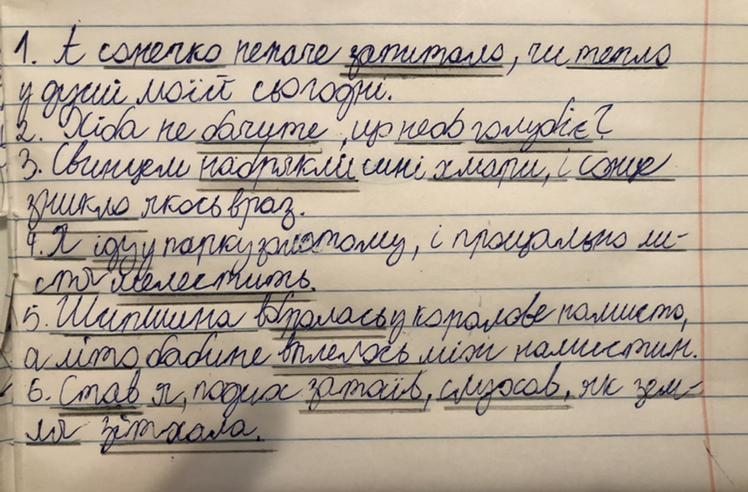 1. А сонечко неначе запитало, чи тепло
у душі моїй сьогодні.
2. Хіба не бачите, що небо голубіє?
3. Свинцем набрякли сині хмари, і сонце
зникло якось враз.
4. Я іду у парку золотому, і прощально ли-
стя шелестить.
5. Шипшина вбралась у коралове намисто,
а літо бабине вплелось між намистин.
6. Став я, подих затаїв, слухав, як зем-
ля зітхала.